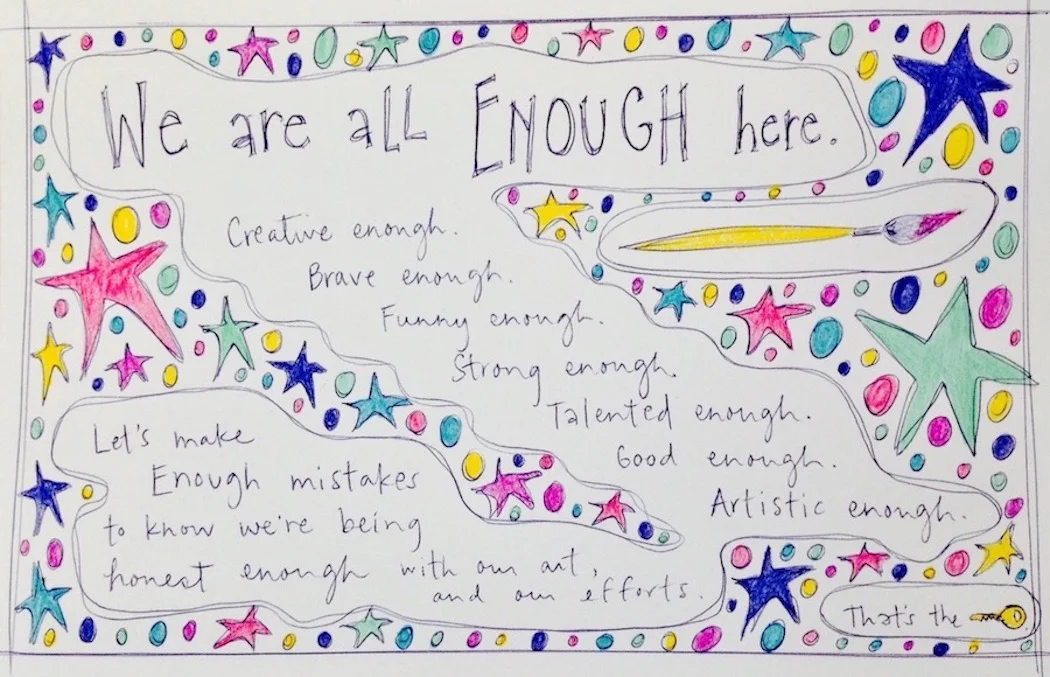 We are all ENOUGH here.
Creative enough.
Brave enough.
Funny enough.
Strong enough.
Talented enough.
Good enough.
Artistic enough.
Let's make
Enough mistakes
to know we're being
honest enough with our art,
and our efforts.
That's the